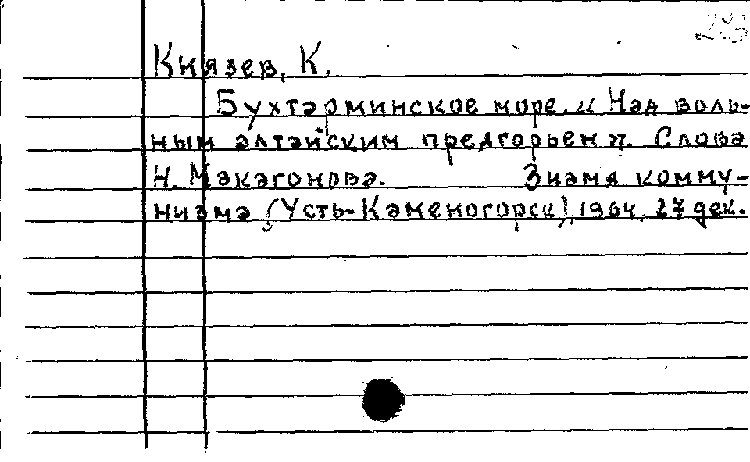 Князев, К.
Бухтарминское море. „Над воль-
ным алтайским предгорьем". Слова
Н. Макагонова. Знамя комму-
низма (Усть-Каменогорск), 1964, 27 дек.